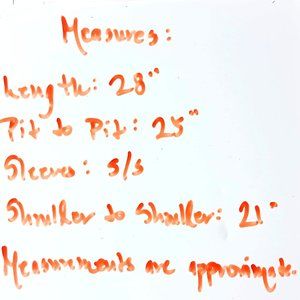 Measures:
Length: 28"
Pit to Pit: 25"
Sleeves: S/S
Shoulder to Shoulder: 21"
Measurements are approximate.